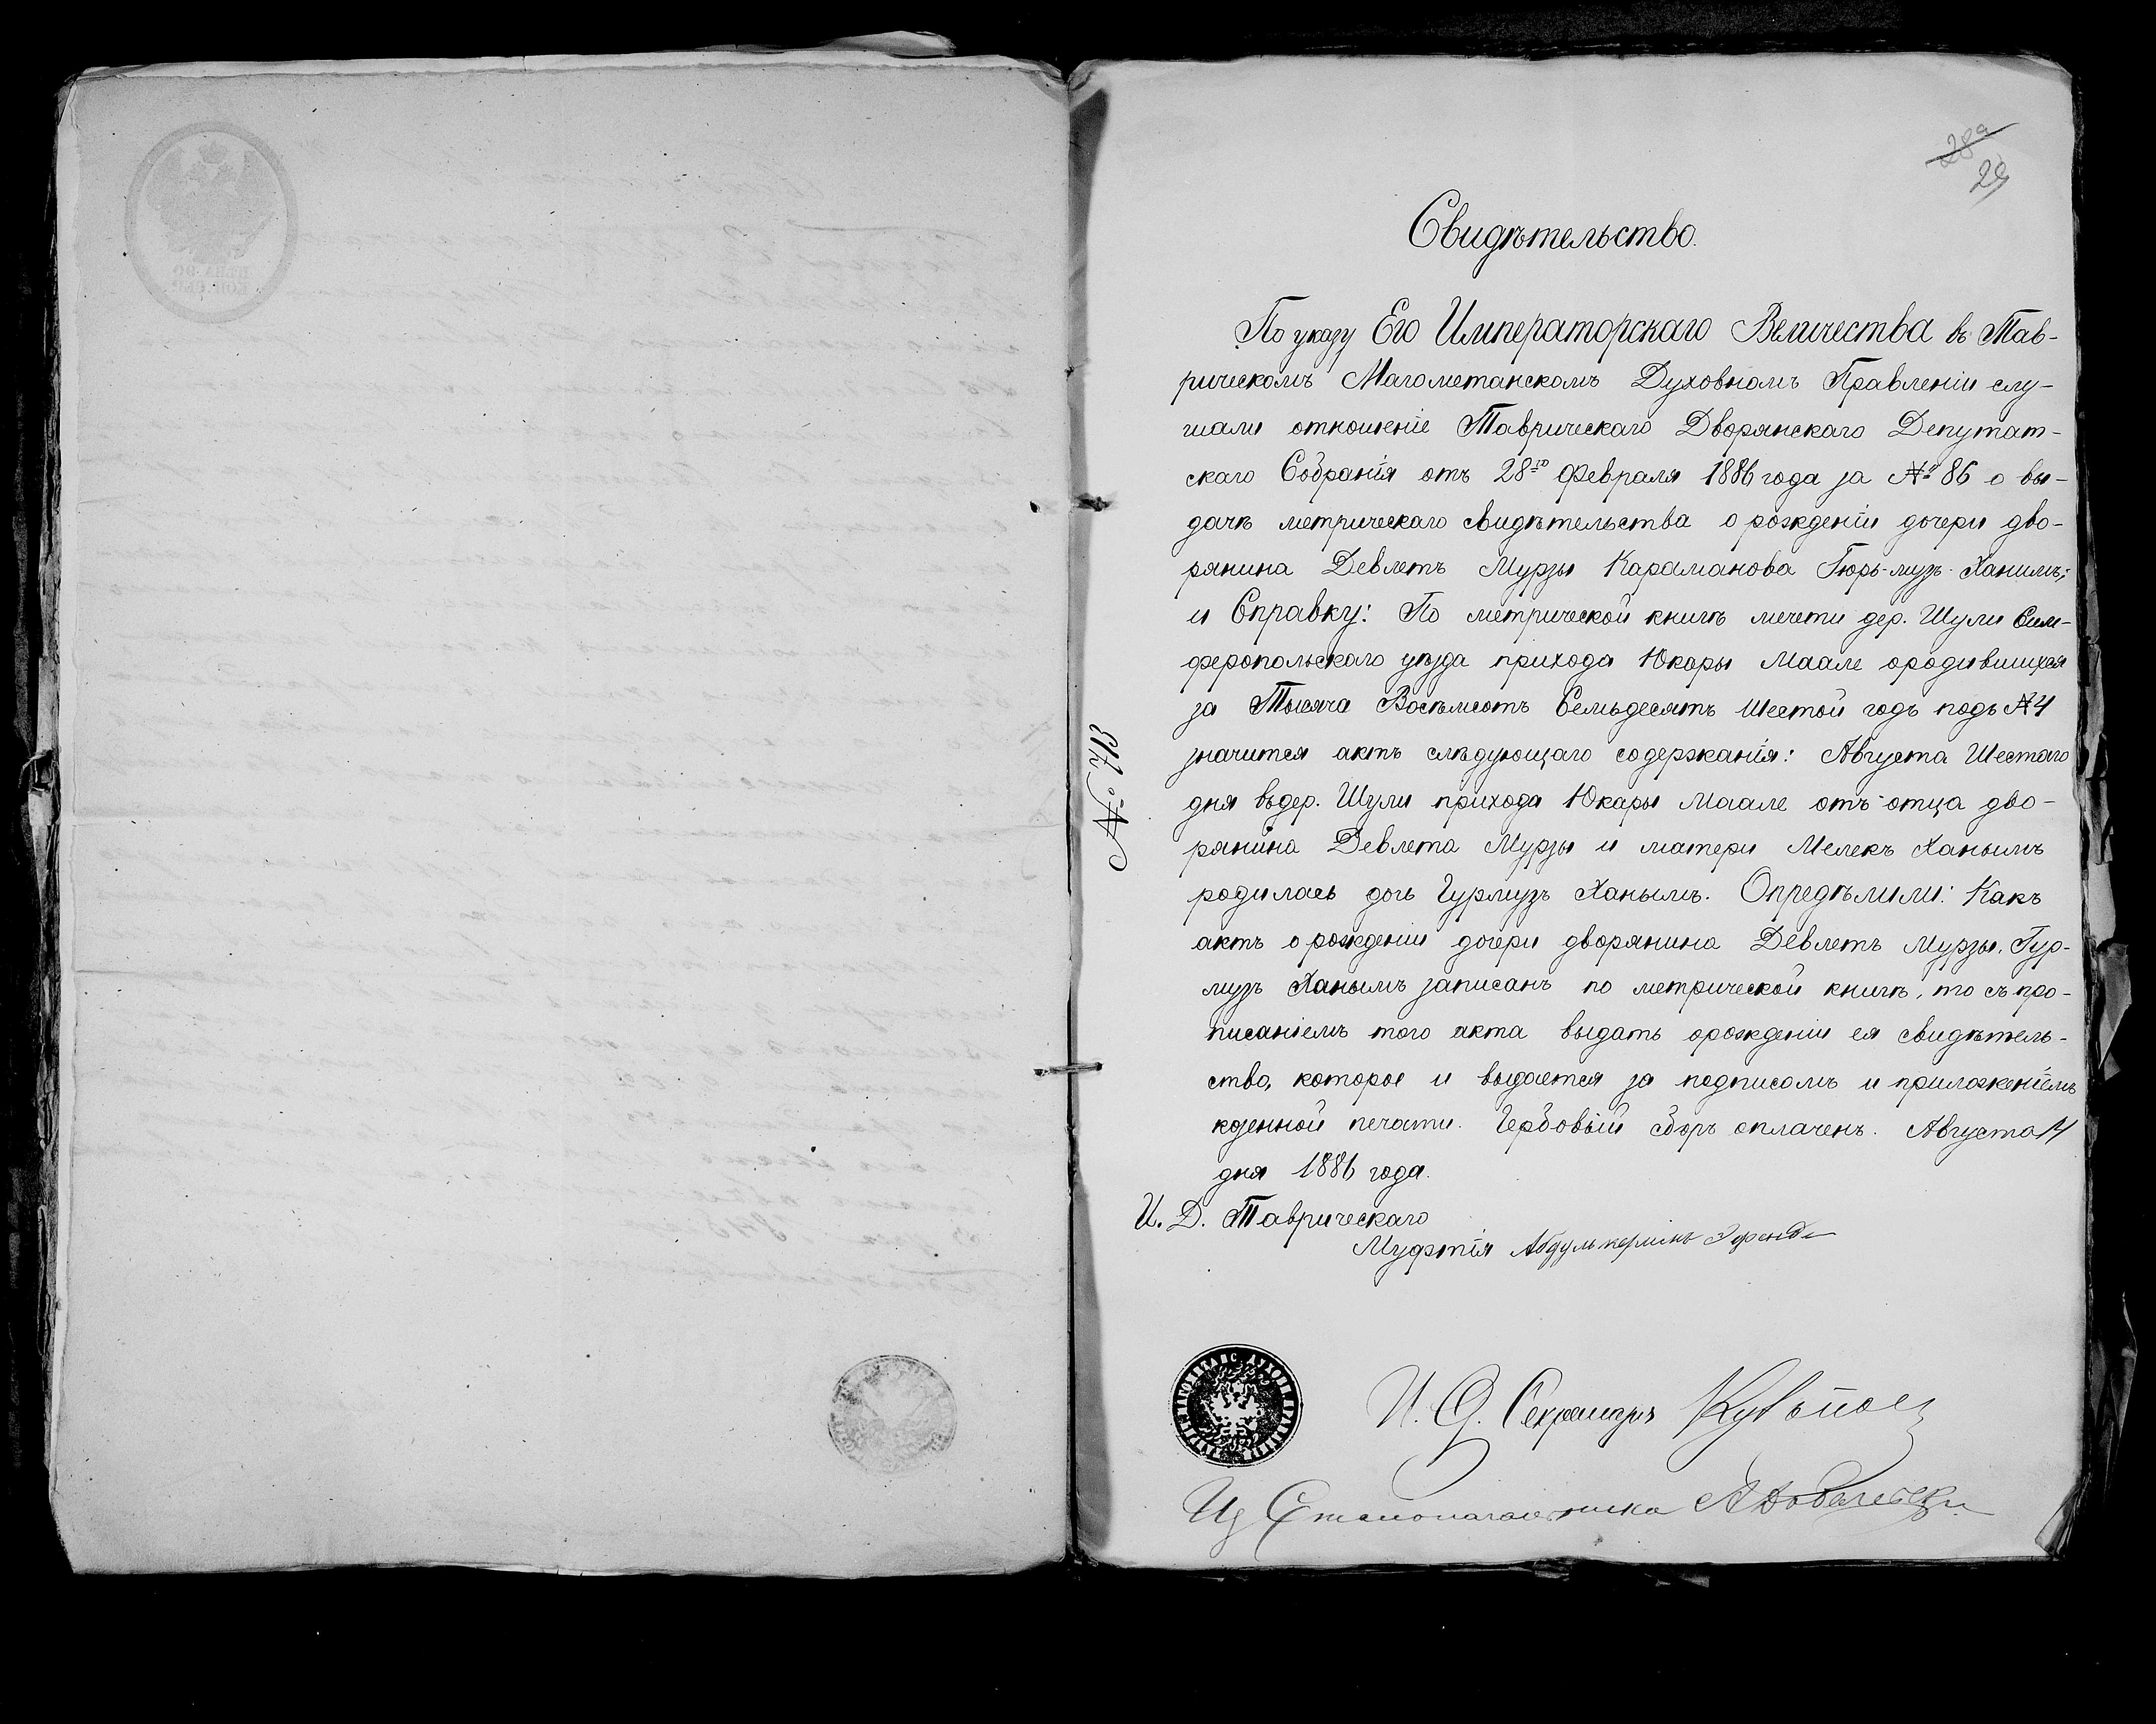 28а
29
Свидѣтельство.
По указу Его Императорскаго Величества въ Тав-
рическомъ Магометанскомъ Духовномъ Правленіи слу-
шали отношеніе Таврическаго Дворянскаго Депутат-
скаго Собранія отъ 28го Февраля 1886 года за № 86 о вы-
дачѣ метрическаго свидѣтельства о рожденіи дочери дво-
рянина Девлетъ Мурзы Караманова Гюрь-музъ-Ханимъ;
и Справку: По метрической книгѣ мечети дер. Шули Сим-
феропольскаго уѣзда прихода Юкары Маале ородившихся
за Тысяча Восѣмсотъ Семьдесятъ Шестой годъ подъ № 4
значится актъ слѣдующаго содержанія: Августа Шестаго
дня въ дер. Шули прихода Юкары Маале отъ отца дво-
рянина Девлета Мурзы и матери Мелекъ Ханымъ
родилась дочь Гурмузъ Ханымъ. Опредѣлили: Какъ
актъ о рожденіи дочери дворянина Девлетъ Мурзы, Гур-
музъ Ханымъ записанъ по метрической книгѣ, то съ про-
писаніемъ того акта выдать орожденіи ея свидѣтель-
ство, которое и выдается за подписомъ и приложеніемъ
казенной печати. Гербовый сборъ оплаченъ. Августа 14
дня 1886 года.
И. Д. Таврическаго
Муфтія Абдулькеримъ Эфенди
№ 713
И. Д. Секретаря
Из Столоначальника